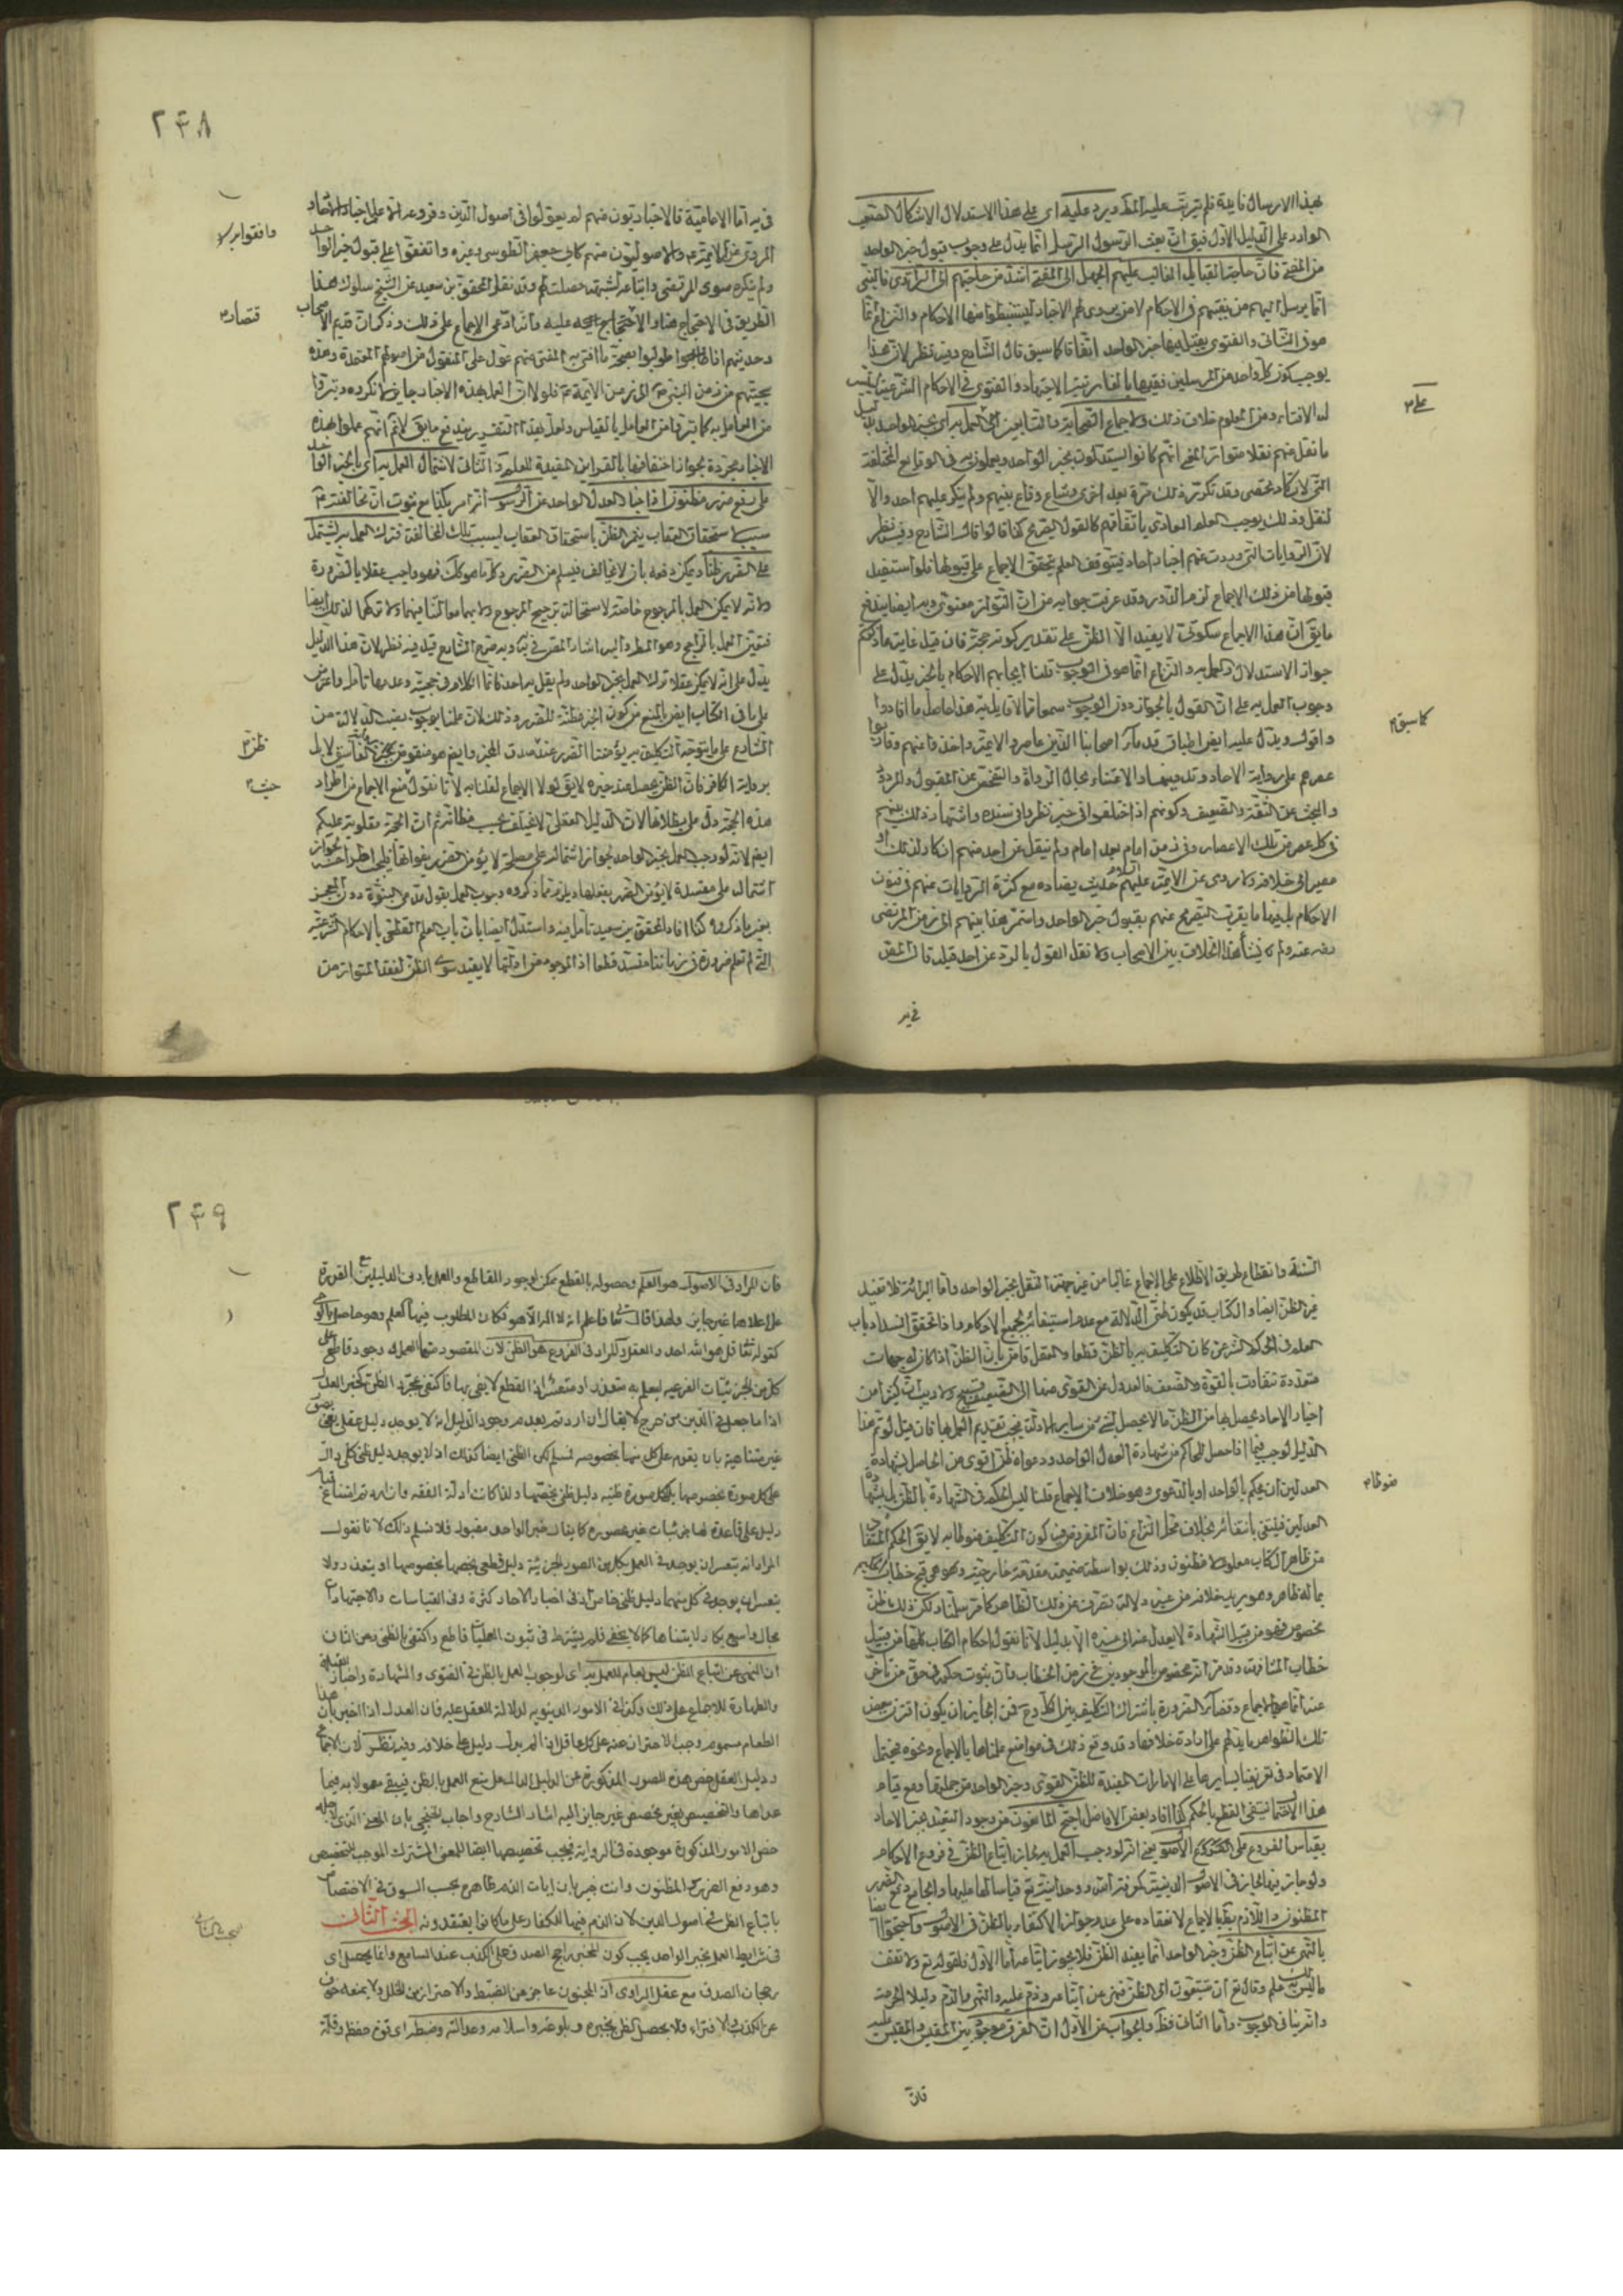 بهذا الارسال فايدة فلم يترتب عليه المط ويرد عليه اى على هذا الاستدلال الاشكال
الوارد على الدليل الاول فيق ان بعث الرسول الرسل انما يدل على وجوب قبول خبر الواحد
من المفتى فان حاجة القبايل الغالب عليهم الجهل الى المفتى اشد من حاجتهم الى الراوى فالنبى
انما يرسل اليهم من يفتيهم فى الاحكام لا من يروى لهم الاخبار ليستنبطوا منها الاحكام والنزاع انما
هو فى الثانى والفتوى يقبل فيها خبر الواحد اتفاقا كما سبق قال الشارح وفيه نظر لان هذا
يوجب كون كل واحد من المرسلين فقيها بالغا رتبة الاجتهاد والفتوى فى الاحكام الشرعية
له الافتاء ومن المعلوم خلاف ذلك ولاجماع الصحابة والتابعين على العمل به اى بخبر الواحد
ما نقل منهم نقلا متواتر المعنى انهم كانوا يستدلون بخبر الواحد ويعملون به فى الوقايع المختلفة
التى لا تكاد تحصى وقد تكرر ذلك مرة بعد اخرى وشاع وذاع بينهم ولم ينكر عليهم احد والا
لنقل وذلك يوجب العلم العادى باتفاقهم كالقول الصريح كذا قالوا قال الشارح وفيه نظر
لان الروايات التى وردت عنهم اخبار احاد فيتوقف العلم بتحقق الاجماع على قبولها فلو استفيد
قبولها من ذلك الاجماع لزم الدور وقد عرفت جوابه من ان التواتر معنوى وبه ايضا يندفع
مايق ان هذا الاجماع سكوتى لا يفيد الا الظن على تقدير كونه حجة فان قيل غاية ما ذكرتم
جواز الاستدلال والعمل به والنزاع انما هو فى الوجوب قلنا ايجابهم الاحكام بالخبر يدل على
وجوب العمل به على ان القول بالجواز دون الوجوب مما لا قايل به هذا حاصل ما افادوا
واقول ويدل عليه ايض اطباق قدماء اصحابنا الذين عاصروا الائمة واخذوا عنهم وقاربوا
عصرهم على رواية الاحاد وتدوينها والاعتناء بحال الرواة والتفحص عن المقبول والمردود
والبحث عن الثقة والضعيف وكونهم اذا اختلفوا فى خبر نظروا فى سنده واشتهار ذلك بينهم
فى كل عصر من تلك الاعصار وفى زمن امام بعد امام ولم ينقل عن احد منهم انكار لذلك او
مصير الى خلافه ولا روى عن الائمة عليهم السلام حديث يضاده مع كثرة الروايات عنهم فى فنون
الاحكام بل فيها ما يقرب التصريح عنهم بقبول خبر الواحد واستمر هذا بينهم الى زمن المرتضى
رضه عنه ولم ينشأ هذا الخلاف بين الاصحاب ولا نقل القول بالرد عن احد قبله قال المص
فى يه
على
كما سبق
٢۴٨
فى يه اما الامامية فالاخباريون منهم لم يعولوا فى اصول الدين وفروعه الا على اخبار الاحاد
المروى عن الائمة ع والاصوليون منهم كابى جعفر الطوسى وغيره واتفقوا على قبول خبر الواحد
ولم ينكره سوى المرتضى واتباعه لشبهة حصلت لهم وقد نقل المحقق بن سعيد عن الشيخ سلوك هذا
الطريق فى الاحتجاج هنا والاحتجاج به عليه وانه ادعى الاجماع على ذلك وذكر ان قديم الاصحاب
وحديثهم اذا طولبوا بصحة ما افتى به المفتى منهم عول على المنقول من اصولهم المعتمدة وهذه
سجيتهم من زمن النبى ص الى زمن الائمة ع فلولا ان العمل بهذه الاخبار جايز لانكروه وتبرؤا
من العامل به كما تبرؤا من العامل بالقياس ولعل بهذا التقدير يندفع مايق لانم انهم عملوا بهذه
الاخبار مجردة لجواز احتفافها بالقراين المفيدة للعلم والثانى لاشتمال العمل به اى بالخبر الواحد
على دفع ضرر مظنون اذ اخبار العدل الواحد عن الرسول انه امر بكذا مع ثبوت ان مخالفته ص
سبب استحقاق العقاب يثمر الظن باستحقاق العقاب بسبب تلك المخالفة فترك العمل به يشتمل
على الضرر ظنا ويمكن دفعه بان لا يخالف فيسلم من الضرر وكل ما هو كك فهو واجب عقلا بالضرورة
ولانه لا يمكن العمل بالمرجوح خاصة لاستحالة ترجيح المرجوح ولا بهما معا لتنافيهما ولا تركهما لذلك ايضا
فتعين العمل بالراجح وهو المط واليه اشار المص فى يه وبه صرح الشارح قيل فيه نظر لان هذا الدليل
يدل على انه لا يمكن عقلا ترك العمل بخبر الواحد ولم يقل به احد
على ما فى الكتاب ايض بالمنع من كون الخبر مظنة للضرر وذلك لان علمنا بوجوب نصب الدلالة من
الشارع على ما يتوجه التكليف به يؤمننا الضرر عند صدق المخبر وايض هو منقوض بخبر الفاسق لا بل
برواية الكافر فان الظن يحصل عند خبره لايق لولا الاجماع لقلنا به لانا نقول منع الاجماع من اطراد
هذه الحجة دل على بطلانها لان الدليل العقلى لا يختلف بحسب مظانه ثم ان الحجة مقلوبة عليكم
ايض لانه لو وجب العمل بخبر الواحد لجواز اشتماله على مصلحة لا يؤمن الضرر بفواتها
اشتماله على مفسدة لا يؤمن الضرر بفعلها ويلزم مما ذكروه وجوب العمل بقول مدعى النبوة دون المعجز
بعين ما ذكروه كذا افاد المحقق بن سعيد تأمل فيه واستدل ايضا بان باب العلم القطعى بالاحكام الشرعية
التى لم تعلم ضرورة فى زماننا منسد قطعا اذ الموجود من ادلتها لا يفيد سوى الظن لفقد المتواتر من
وافقوا
ظن
حيث
السنة وانقطاع طريق الاطلاع على الاجماع غالبا من غير جهة النقل بخبر الواحد واما البرائة فلا تفيد
غير الظن ايضا والكتاب قد يكون ظنى الدلالة مع عدم استيفائه بجميع الاحكام واذا تحقق انسداد باب
العلم فى الحكم الشرعى كان التكليف به بالظن قطعا والعقل قاض بان الظن اذا كان له جهات
متعددة تتفاوت بالقوة والضعف فالعدول عن القوى منها الى الضعيف قبيح ولا ريب ان كثيرا من
اخبار الاحاد يحصل بها من الظن ما لا يحصل بشئ من ساير الادلة فيجب تقديم العمل بها فان قيل لو تم هذا
الدليل لوجب فيما اذا حصل للحاكم من شهادة العدل الواحد ودعواه ظن اقوى من الحاصل بشهادة
العدلين ان يحكم بالواحد او بالدعوى وهو خلاف الاجماع قلنا ليس الحكم فى الشهادة بالظن بل بشهادة
العدلين فينتفى بانتفائه بخلاف محل النزاع فان المفروض فيه كون التكليف منوطا به لايق الحكم المستفاد
من ظاهر الكتاب معلوم لا مظنون وذلك بواسطة ضميمة مقدمة خارجية وهو هى قبح خطاب الحكيم
بما له ظاهر وهو يريد خلافه من غير دلالة تصرف عن ذلك الظاهر كما مر سلمنا ولكن ذلك ظن
مخصوص فهو من قبيل الشهادة لا يعدل عنه الى غيره الا بدليل لانا نقول احكام الكتاب كلها من قبيل
خطاب المشافهة وقد مر انه مخصوص بالموجودين فى زمن الخطاب وان ثبوت حكمه فى حق من تاخر
عنه انما هو بالاجماع وقضاء الضرورة باشتراك التكليف بين الكل وح فمن الجايز ان يكون اقترن ببعض
تلك الظواهر ما يدلهم على ارادة خلافها وقد وقع ذلك فى مواضع علمناها بالاجماع ونحوه فيحتمل
الاعتماد فى تعريفنا بسايرها على الامارات المفيدة للظن القوى وخبر الواحد من جملتها ومع قيام
هذا الاحتمال ينتفى القطع بالحكم كذا افاد بعض الافاضل احتج المانعون من وجود التعبد بخبر الاحاد
بقياس الفروع على الاصول يعنى انه لو وجب العمل به لجاز اتباع الظن فى فروع الاحكام
المظنون واللازم بط بالاجماع لانعقاده على عدم جواز الاكتفاء بالظن فى الاصول واحتجوا ايضا
بالنهى عن اتباع الظن وخبر الواحد انما يفيد الظن فلا يجوز اتباعه اما الاول فلقوله تع ولا تقف
ما ليس لك به علم وقال تع ان يتبعون الا الظن فنهى عن اتباعه وذم عليه والنهى والذم دليلا الحرمة
وانها تنافى الوجوب واما الثانى فظ والجواب عن الاول ان الفرق موجود بين المقيس والمقيس عليه
فان
منوطا به
٢۴٩
فان المراد فى الاصول هو العلم وحصوله بالقطع ممكن لوجود القاطع والعمل بادنى الدليلين مع القدرة
على اعلاها غير جايز ولهذا قال تعالى فاعلم انه لا اله الا هو فكان المطلوب فيها العلم وهو حاصل
كقوله تعا قل هو الله احد والعقل والمراد فى الفروع هو الظن لان المقصود منها العمل
كل من الجزئيات الفرعية ليعلم به متعذر او متعسر اذ القطع لا يفى بها فاكتفى بمجرد الظن كخبر العدل
اذ ما جعل فى الدين من حرج لا يقال ان اردتم بعدم وجود الدليل انه لا يوجد دليل عقلى
غير متناهية بان يقوم على كل منها بخصوصه لمسلم لكن الظن ايضا كذلك اذ لا يوجد دليل ظنى كلى دال
على كل صورة بخصوصها بل لكل صورة ظنية دليل ظنى يخصها ولذا كانت ادلة الفقه
دليل على قاعدة لها جزئيات غير محصورة كما يقال خبر الواحد مقبول فلا نسلم ذلك لانا نقول
المراد انه يتعسر ان يوجد فى العمل بكل من الصور الجزئية دليل قطعى يخصها بخصوصها او يتعذر ولا
يتعسر ان يوجد فى كل منهما دليل ظنى خاص اذ فى اخبار الاحاد كثرة وفى القياسات والاجتهادات
مجال واسع يكاد لا يتناهى كما لا يخفى فلم يشترط فى ثبوت العمليات قاطع واكتفى بالظن وعن الثانى
ان النهى عن اتباع الظن ليس بعام للعمل به اى لوجوب العمل بالظن فى الفتوى والشهادة واخبار القبلة
والطهارة للاجماع على ذلك وكذا فى الامور الدنيوية لدلالة العقل عليه فان العدل اذا اخبر بان هذا
الطعام مسموم وجب الاحتراز عنه على كل عاقل اذا لم يدل دليل على خلافه وفيه نظر لان الاجماع
ودليل العقل خص هذه الصور المذكورة عن الدليل الدال على منع العمل بالظن فيبقى معمولا به فيما
عداها والتخصيص بغير مخصص غير جايز اليه اشار الشارح واجاب الخنجى بان المعنى الذى لاجله
خص الامور المذكورة موجودة فى الرواية فيجب تخصيصها ايضا للمعنى المشترك الموجب للتخصيص
وهو دفع الضرر المظنون وانت خبير بان ايات الذم ظاهرة بحسب السوق فى الاختصاص
باتباع الظن فى اصول الدين لان الذم فيها للكفار على ما كانوا يعتقدونه البحث الثانى
فى شرايط العمل بخبر الواحد يجب كون المخبر راجح الصدق على الكذب عند السامع وانما يحصل اى
رجحان الصدق مع عقل الراوى اذ المجنون عاجز عن الضبط والاحتراز من الخلل ولا يمنعه خوف
عن الكذب والافتراء ولا يحصل الظن بخبره وبلوغه واسلامه وعدالته وضبطه اى قوة حفظه وقلة